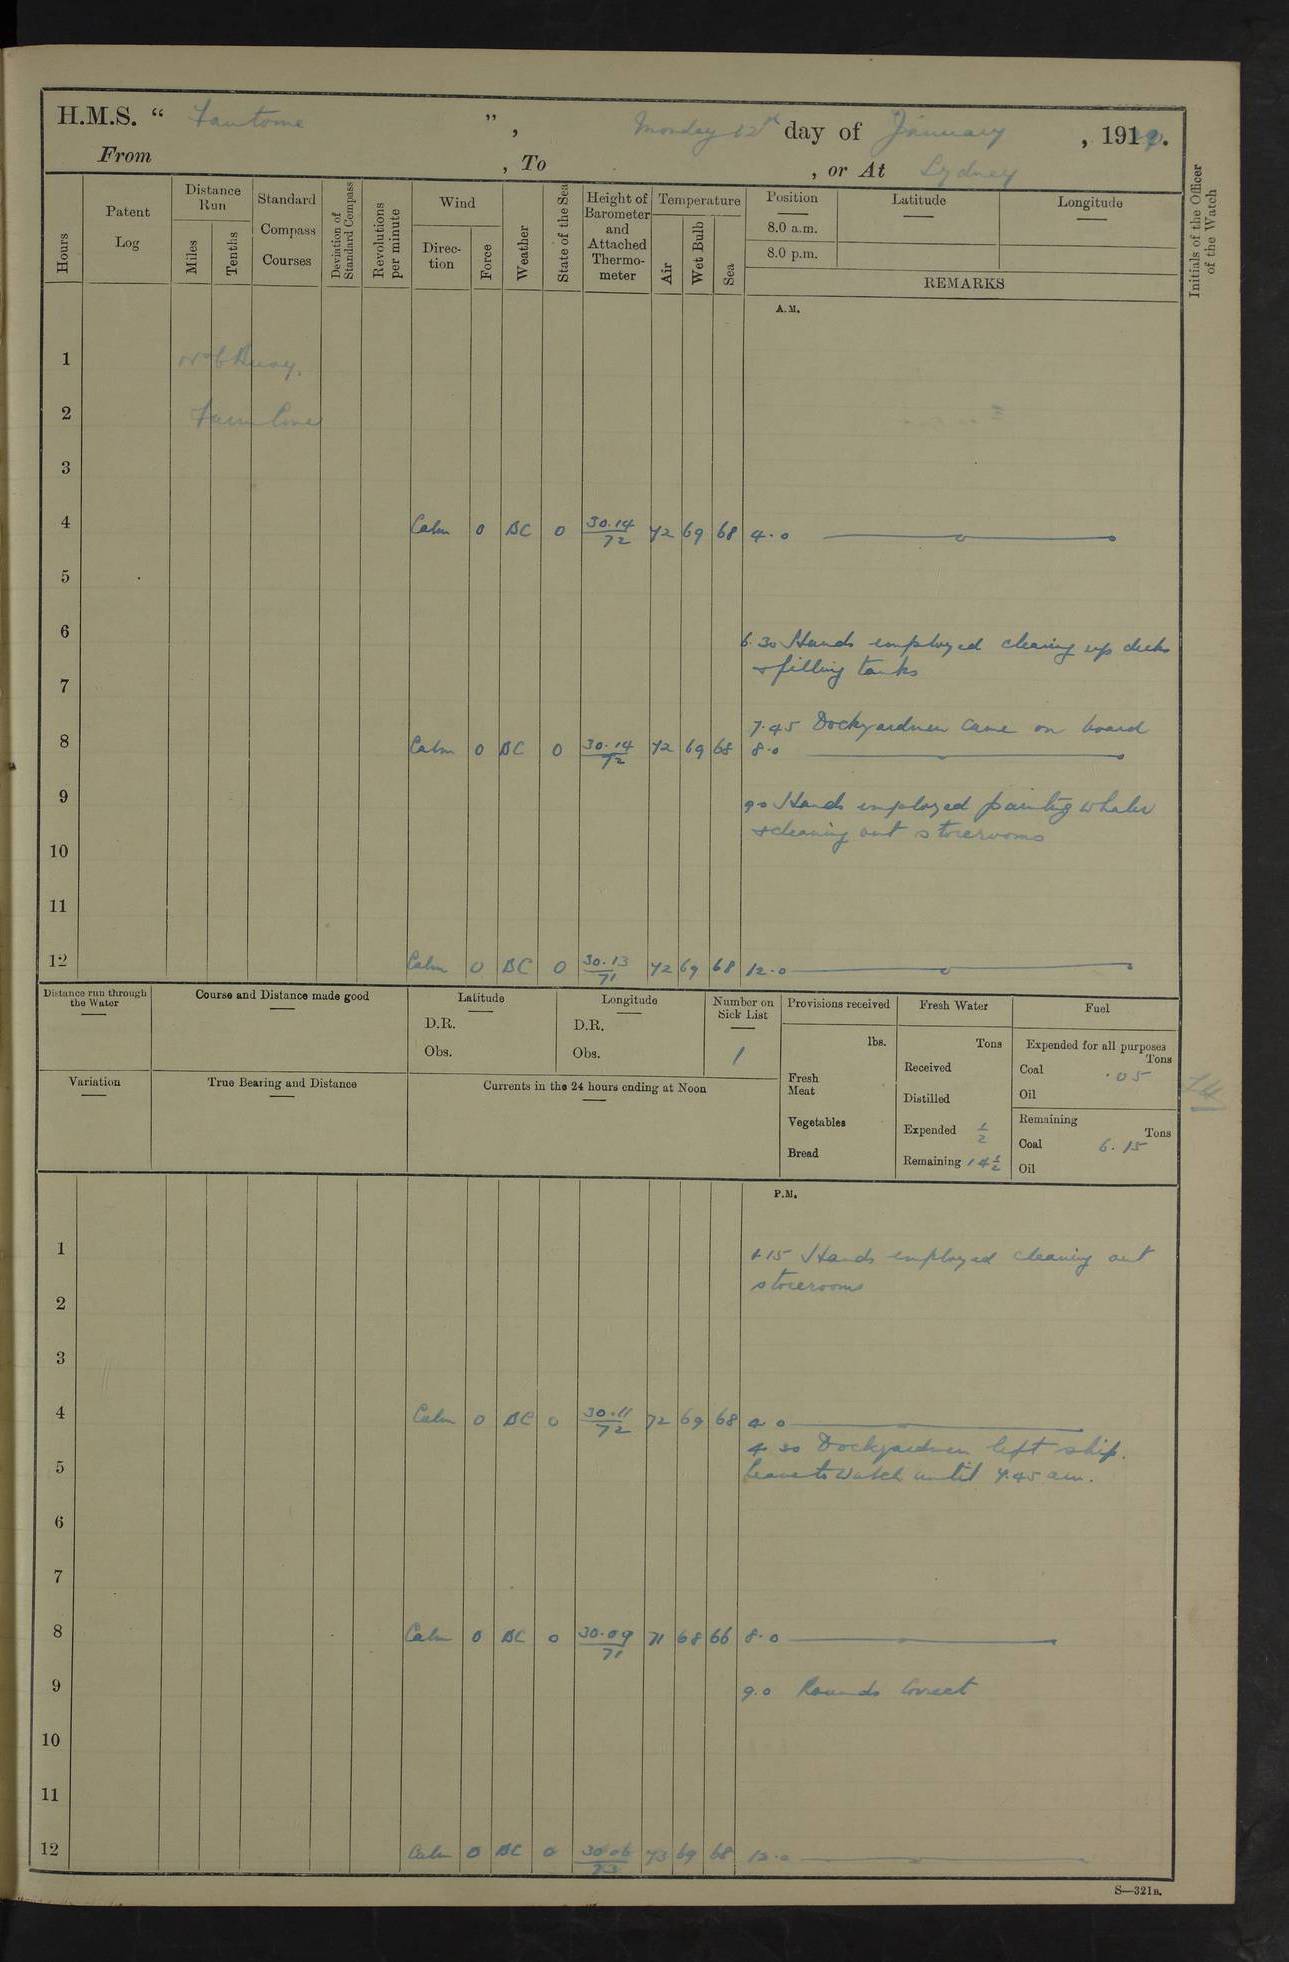 H.M.S. “ Fantome ”, Monday 12th day of January, 191
From , To , or At Sydney
Hours
Patent Log
Distance Run
Miles
Tenths
Standard Compass Courses
Deviation of Standard Compass
Revolutions per minute
Wind
Direction
Force
Weather
State of the Sea
Height of Barometer and Attached Thermometer
Temperature
Air
Wet Bulb
Sea
Position
8.0 a.m.
8.0 p.m.
Latitude
Longitude
REMARKS
Initials of the Officer of the Watch
A.M.
1 Buoy.
2 Farm Cove
3
4 Calm 0 BC 0 30.14 72 72 69 68 4.0
5
6 6.30 Hands employed clearing up decks
& filling tanks
7
7.45 Dockyardmen came on board
8 Calm 0 BC 0 30.14 72 72 69 68 8.0
9 9.0 Hands employed painting whaler
& cleaning out storerooms
10
11
12 Calm 0 BC 0 30.13 71 72 69 68 12.0
Distance run through the Water
Course and Distance made good
Latitude
D.R.
Obs.
Longitude
D.R.
Obs.
Number on Sick List
1
Variation
True Bearing and Distance
Currents in the 24 hours ending at Noon
Provisions received
lbs.
Fresh Meat
Vegetables
Bread
Fresh Water
Tons
Received
Distilled
Expended 1/2
Remaining 14 1/2
Fuel
Expended for all purposes
Tons
Coal .05
Oil
Remaining
Tons
Coal 6.15
Oil
P.M.
1 1.15 Hands employed cleaning out
storerooms
2
3
4 Calm 0 BC 0 30.11 72 72 69 68 4.0
4.30 Dockyardmen left ship.
5 Leave to Watch until 7.45 am.
6
7
8 Calm 0 BC 0 30.09 71 71 68 66 8.0
9 9.0 Rounds Correct
10
11
12 Calm 0 BC 0 30.06 73 73 69 68 12.0
S—321B.